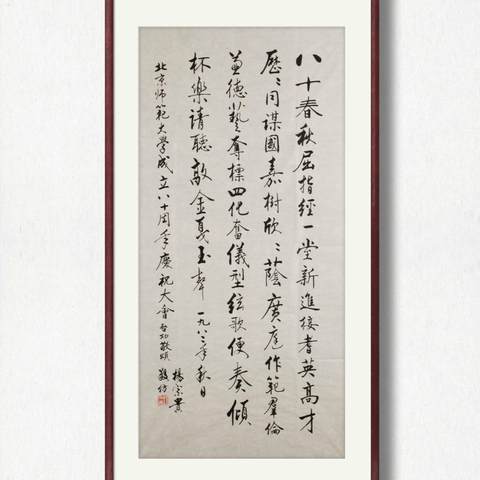 八十春秋屈指經一堂新進接耆英高才
歷〻同謀國嘉樹欣〻蔭廣庭作範羣倫
兼德藝奪標四化奮儀型絃歌便奏傾
杯樂請聽敲金戛玉聲 一九八二年秋日
北京师範大學成立八十周年慶祝大會 启功敬頌
楊宗貴
敬仿